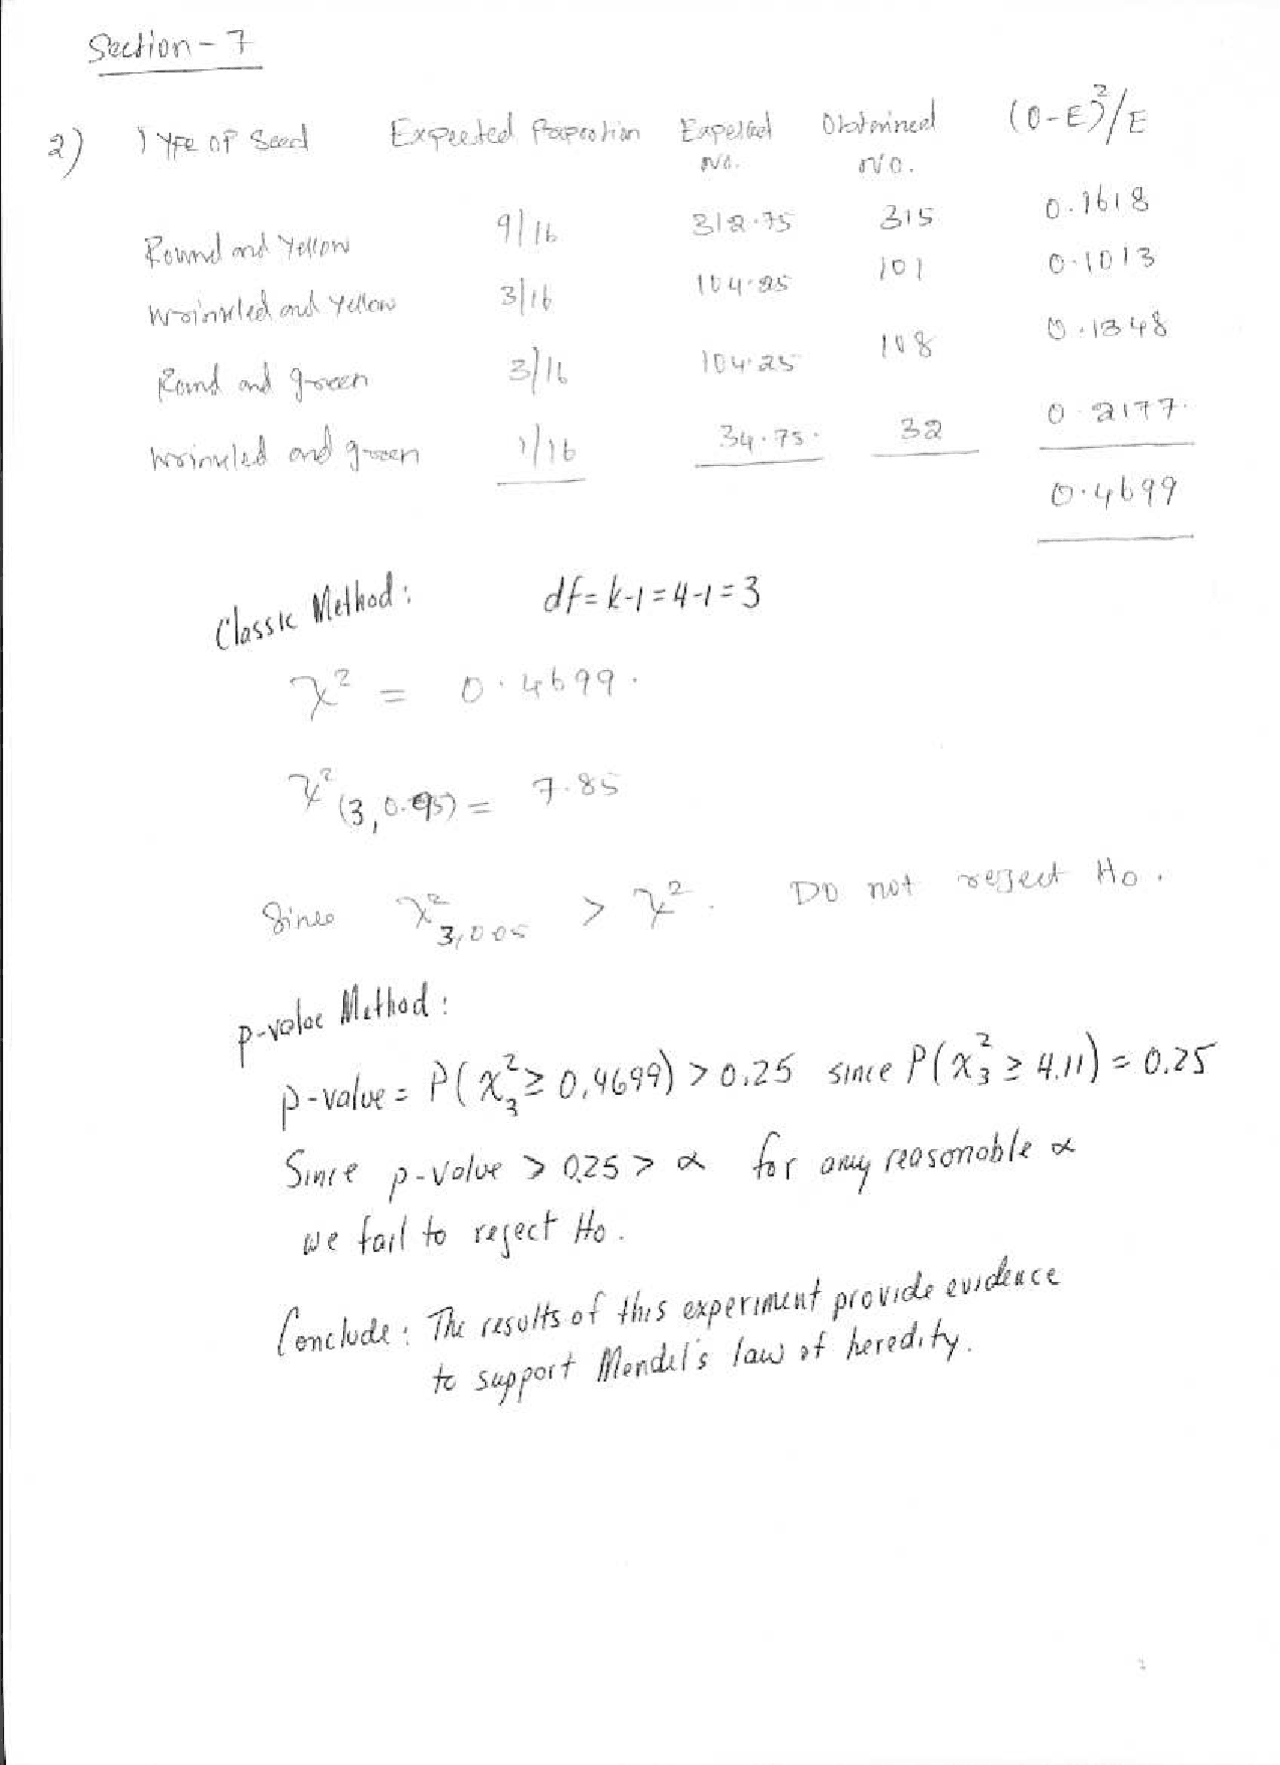 Section - 7
2) Type of Seed Expected Proportion Expected No. Obtained No. (O-E)²/E
Round and Yellow 9/16 312.75 315 0.1618
Wrinkled and Yellow 3/16 104.25 101 0.1013
Round and green 3/16 104.25 108 0.1348
Wrinkled and green 1/16 34.75. 32 0.2177.
0.4699
Classic Method: df = k-1 = 4-1 = 3
χ² = 0.4699.
χ²(3,0.95) = 7.85
Since χ²3,0.05 > χ². Do not reject Ho.
p-value Method:
p-value = P(χ²3 ≥ 0.4699) > 0.25 since P(χ²3 ≥ 4.11) = 0.25
Since p-value > 0.25 > α for any reasonable α
we fail to reject Ho.
Conclude: The results of this experiment provide evidence
to support Mendel's law of heredity.